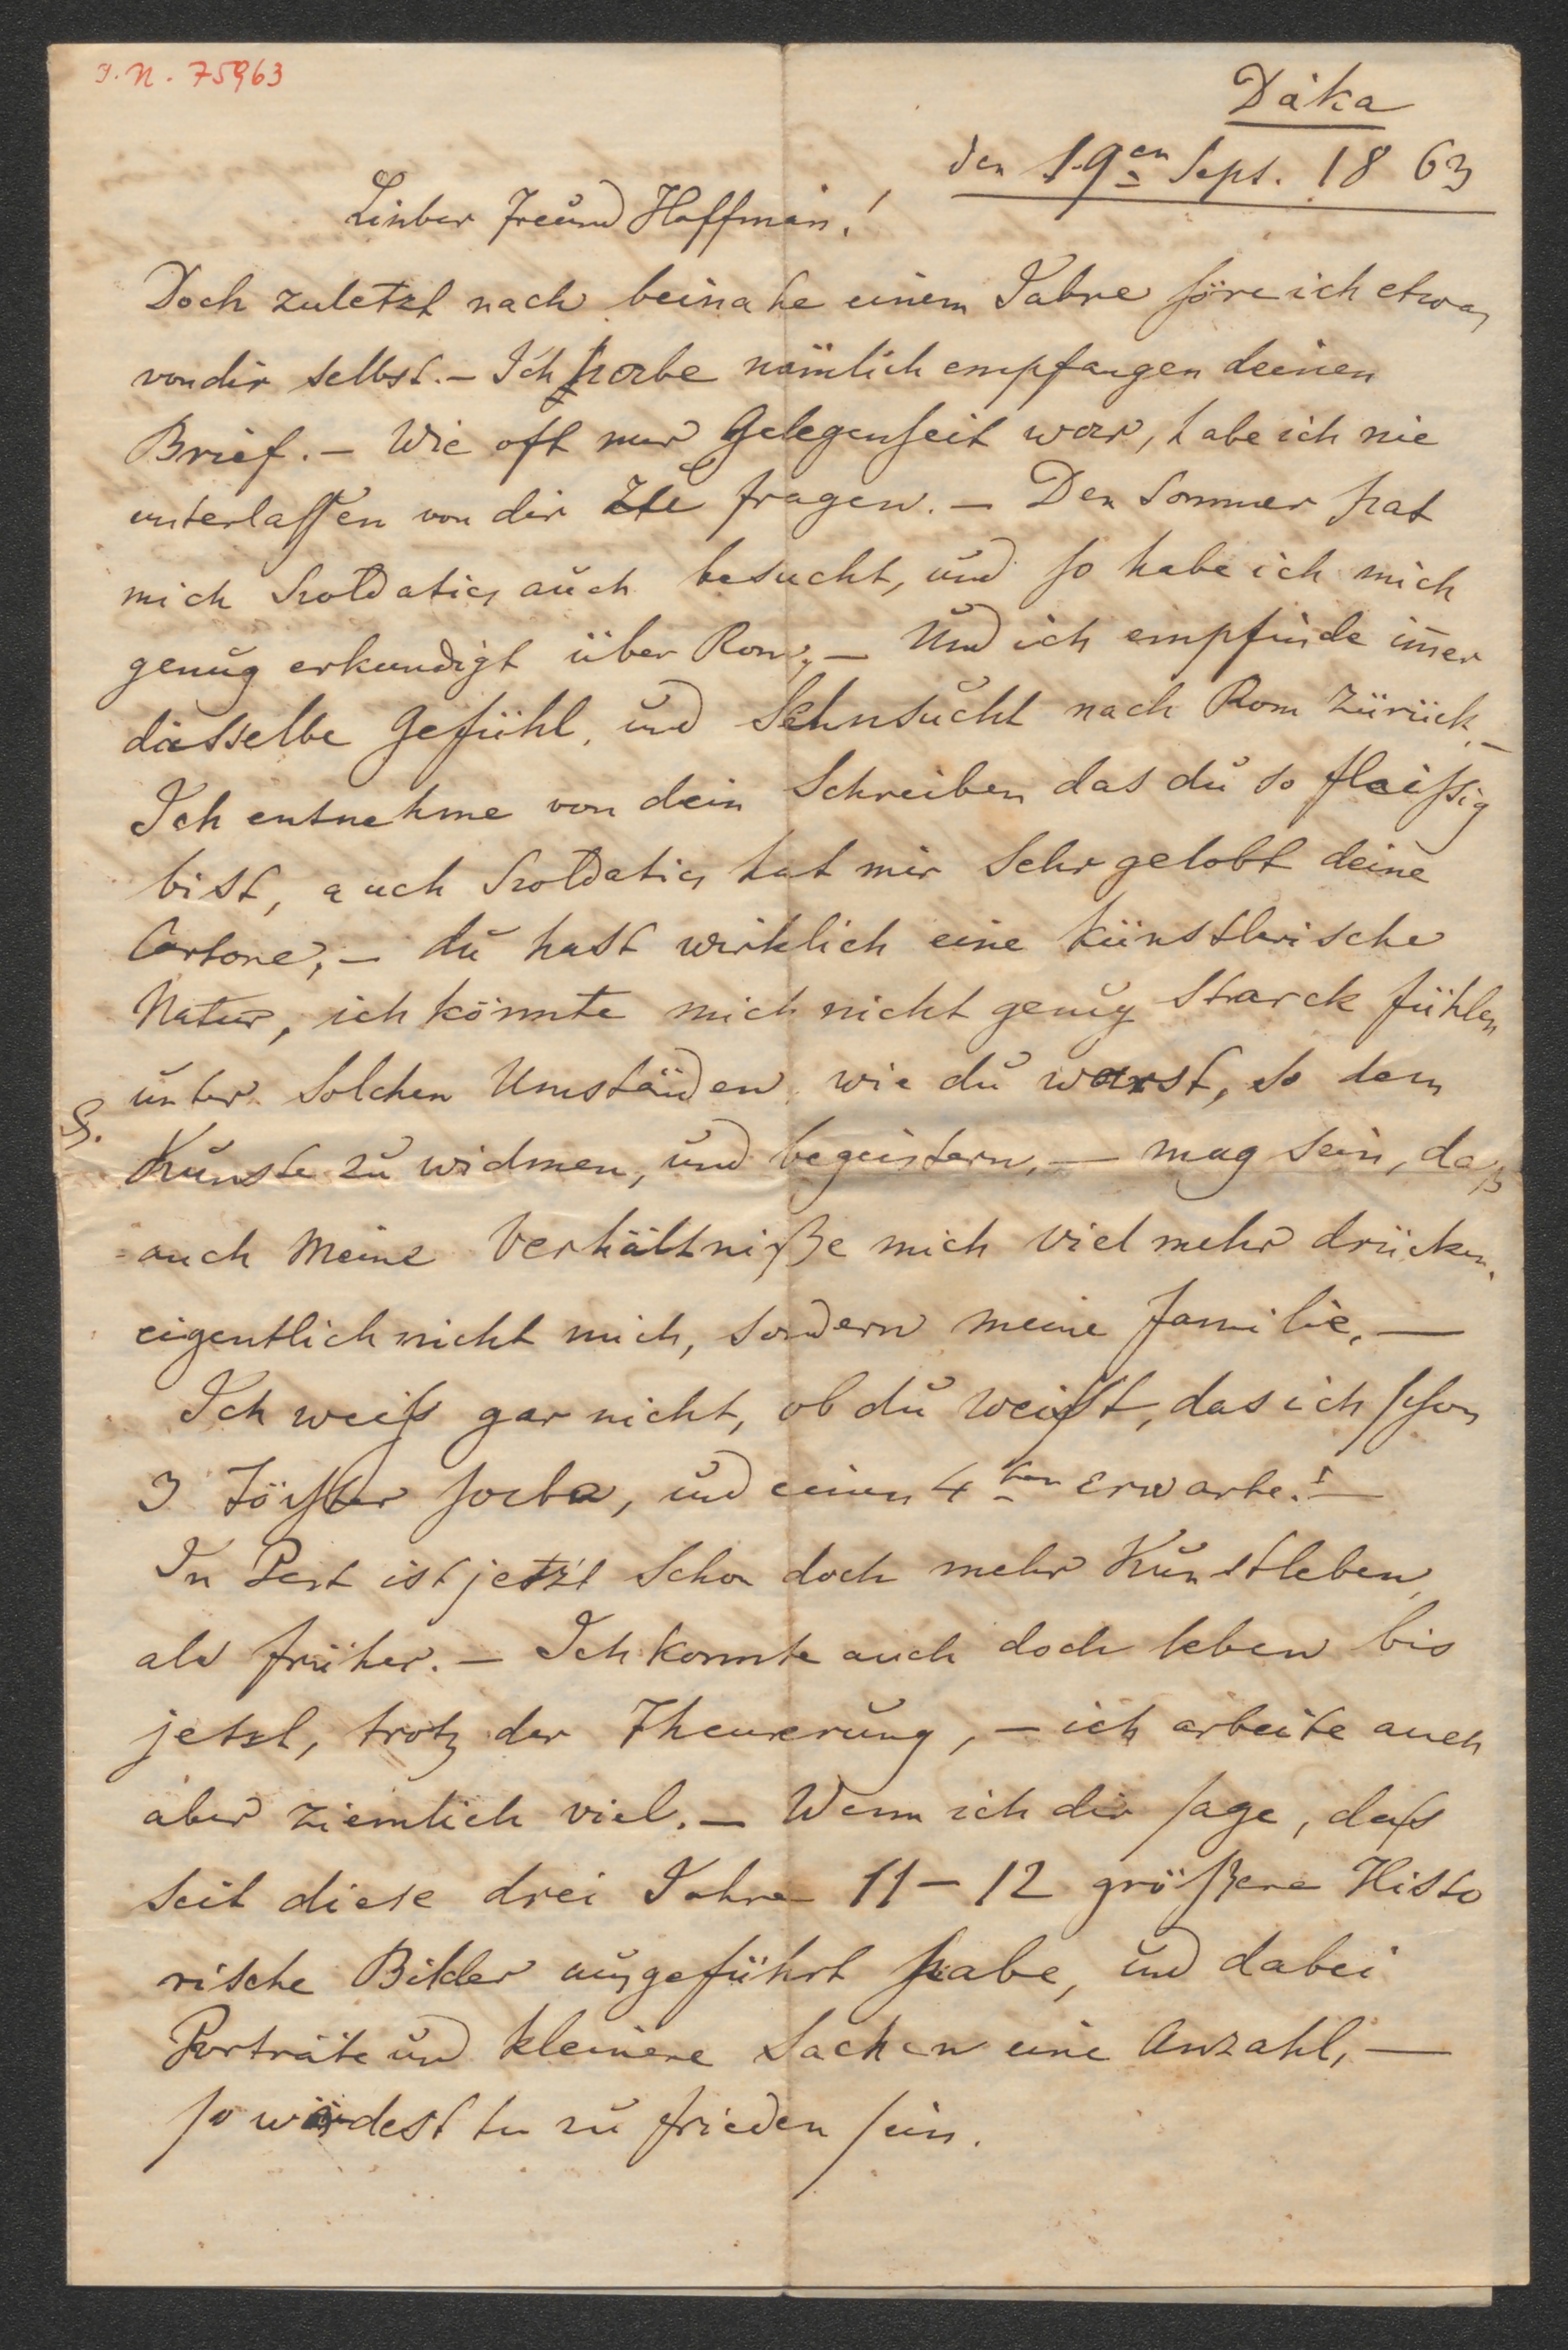 J. N. 75963
Dáka
den 19en Sept. 1863
Lieber Freund Hoffman!
Doch zuletzt nach beinahe einem Jahre höre ich etwas
von dir selbst. – Ich habe nämlich empfangen deinen
Brief. – Wie oft nur Gelegenheit war, habe ich nie
unterlassen von dir zu fragen. – Den Sommer hat
mich Szoldatics auch besucht, und so habe ich mich
genug erkundigt über Rom, – Und ich empfinde im̅er
dasselbe Gefühl, und Sehnsucht nach Rom zürück. –
Ich entnehme von dein Schreiben das du so fleißig
bist, auch Szoldatics hat mir sehr gelobt deine
Cartone, – du hast wirklich eine künstlerische
Natur, ich könnte mich nicht genug starck fühlen
unter solchen Umständen wie du warst, so dem
Kunste zu widmen, und begeistern, – mag sein, daß
auch meine Verhältniße mich viel mehr drücken,
eigentlich nicht mich, sondern meine Familie, –
Ich weiß gar nicht, ob du weißt, das ich schon
3 Töchter habe, und einen 4ten erwarte! –
In Pest ist jetzt schon doch mehr Kunstleben,
als früher. – Ich konnte auch doch leben bis
jetzt, trotz der Theurerung, – ich arbeite auch
aber ziemlich viel. – Wenn ich dir sage, daß
seit diese drei Jahre 11–12 größere Histo
rische Bilder ausgeführt habe, und dabei
Porträte und kleinere Sachen eine Anzahl, –
so würdest tu zu frieden sein.